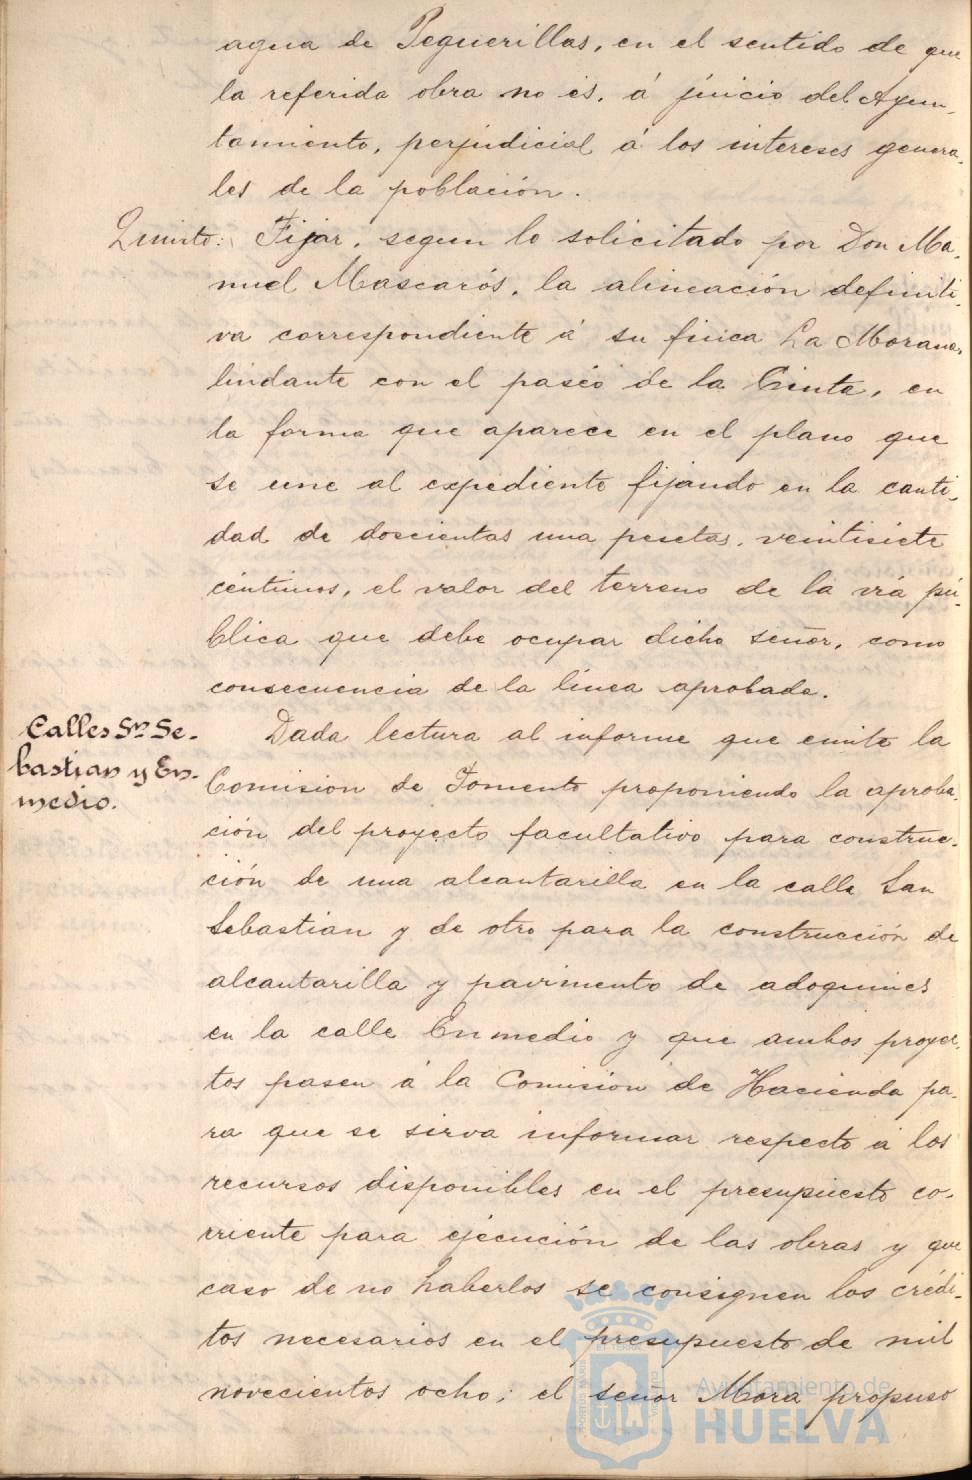 agua de Peguerillas, en el sentido de que
la referida obra no és, á juicio del Ayun-
tamiento, perjudicial á los intereses genera-
les de la población.
Quinto: Fijar, segun lo solicitado por Don Ma-
nuel Mascarós, la alineación definiti-
va correspondiente á su finca La Morana,
lindante con el paséo de la Cinta, en
la forma que aparece en el plano que
se une al expediente fijando en la canti-
dad de doscientas una pesetas, veintisiete
céntimos, el valor del terreno de la vía pú-
blica que debe ocupar dicho señor, como
consecuencia de la línea aprobada.
Calles Sn. Se-
bastian y En-
medio.
Dada lectura al informe que emite la
Comision de Fomento proponiendo la aproba-
ción del proyecto facultativo para construc-
ción de una alcantarilla en la calle San
Sebastian y de otro para la construcción de
alcantarilla y pavimento de adoquines
en la calle Enmedio y que ambos proyec-
tos pasen á la Comisión de Hacienda pa-
ra que se sirva informar respecto á los
recursos disponibles en el presupuesto co-
rriente para ejécución de las obras y que
caso de no haberlos se consignen los crédi-
tos necesarios en el presupuesto de mil
novecientos ocho; el señor Mora propuso
Ayuntamiento de
HUELVA